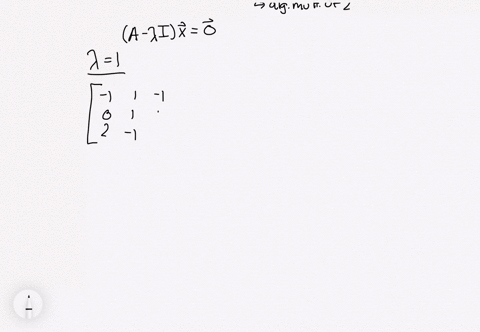 ↳ alg. mult. of 2
(A-λI)x⃗ = 0⃗
λ = 1
-1 1 -1
0 1
2 -1